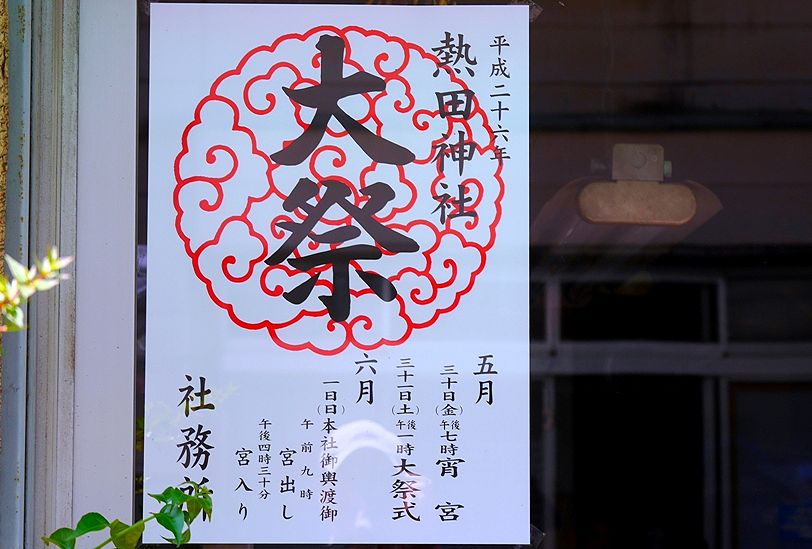 平成二十六年
熱田神社
大祭
五月
三十日(金)午後七時宵宮
三十一日(土)午後一時大祭式
六月
一日(日)本社御輿渡御
午前九時
宮出し
午後四時三十分
宮入り
社務所